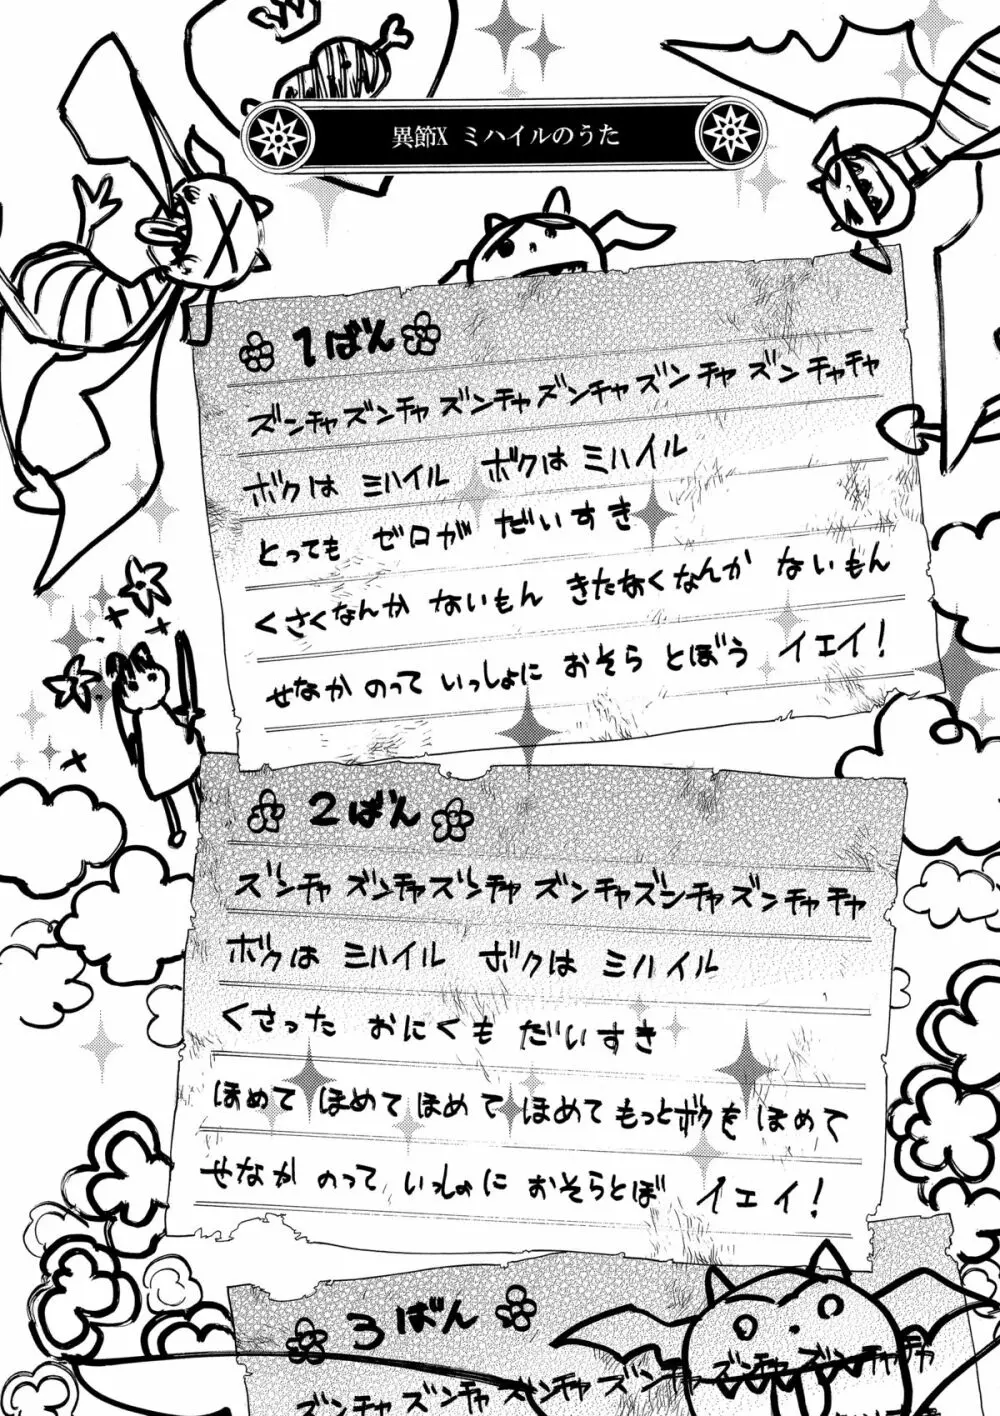 異節X ミハイルのうた
1ばん
ズンチャズンチャズンチャズンチャズンチャズンチャチャ
ボクは ミハイル ボクは ミハイル
とっても ゼロが だいすき
くさくなんか ないもん きたなくなんか ないもん
せなか のって いっしょに おそら とぼう イエイ!
2ばん
ズンチャ ズンチャズンチャ ズンチャズンチャズンチャチャ
ボクは ミハイル ボクは ミハイル
くさった おにくも だいすき
ほめて ほめて ほめて ほめて もっとボクを ほめて
せなか のって いっしょに おそらとぼ イエイ!
3ばん
ズンチャズンチャ ズンチャ ズンチャ ズンチャ ズンチャチャ